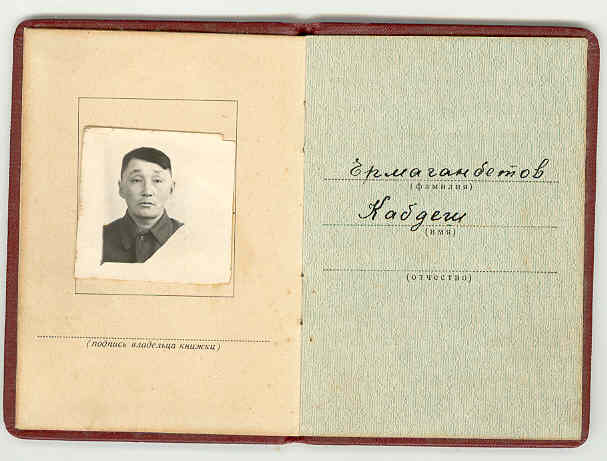 (подпись владельца книжки)
Ермаганбетов
(фамилия)
Кабдеш
(имя)
(отчество)